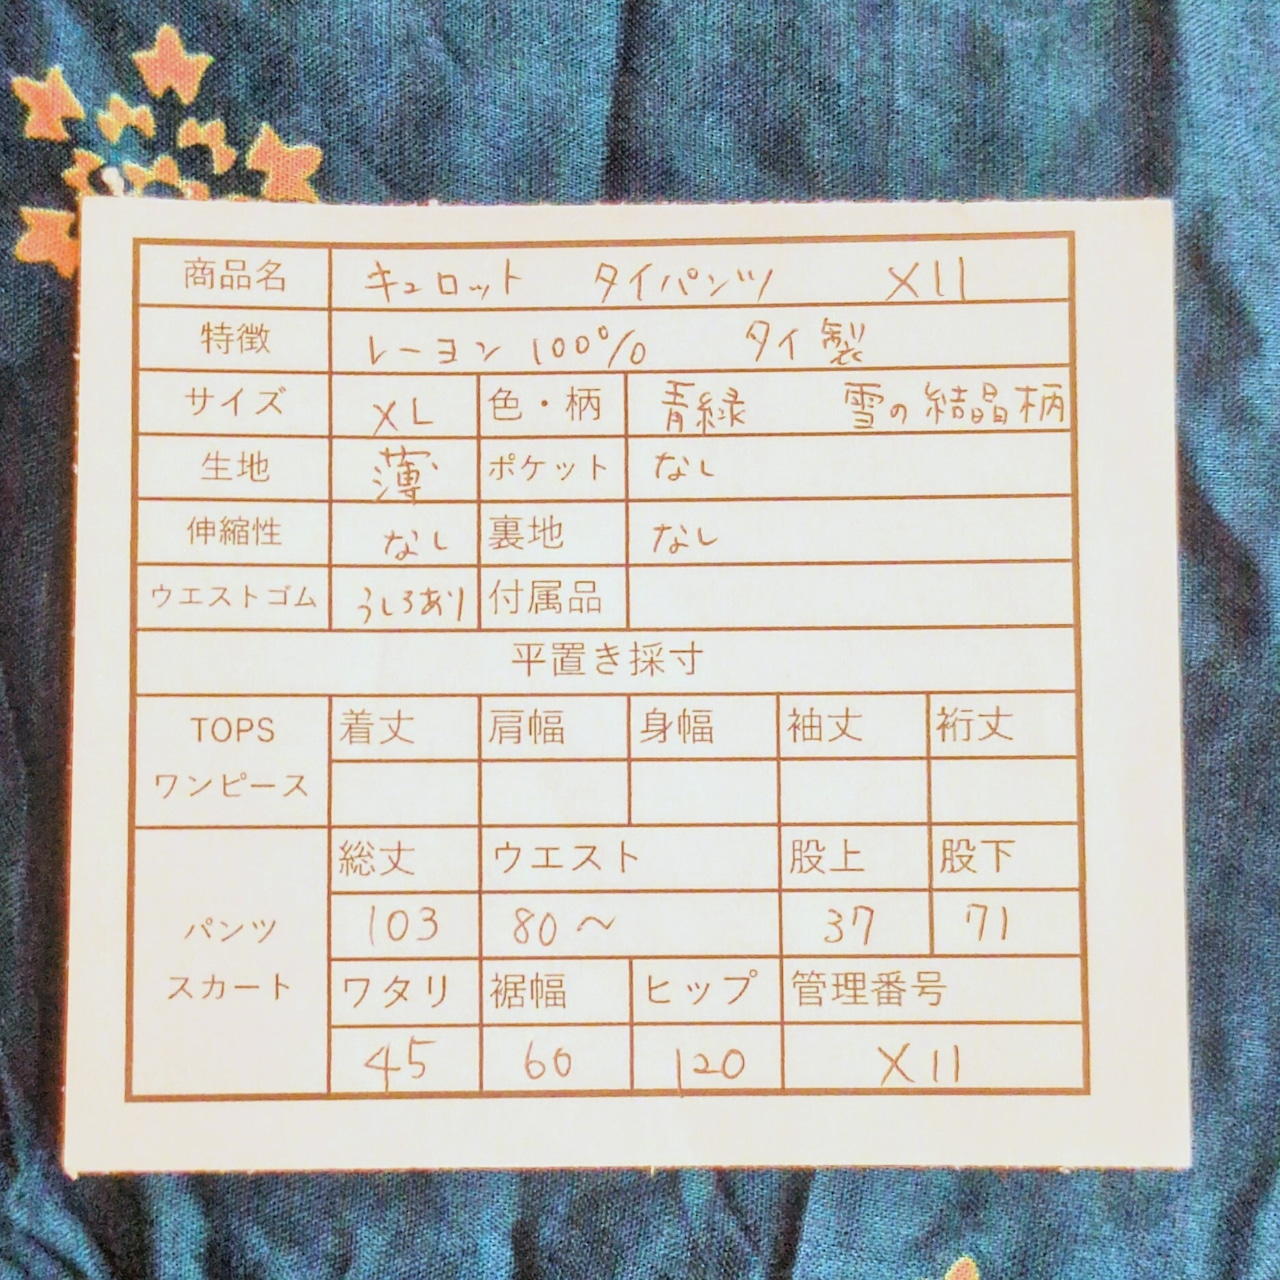 商品名 キュロット タイパンツ X11
特徴 レーヨン 100% タイ製
サイズ XL 色・柄 青緑 雪の結晶柄
生地 薄 ポケット なし
伸縮性 なし 裏地 なし
ウエストゴム うしろあり 付属品
平置き採寸
TOPS 着丈 肩幅 身幅 袖丈 裄丈
ワンピース
総丈 ウエスト 股上 股下
パンツ 103 80〜 37 71
スカート ワタリ 裾幅 ヒップ 管理番号
45 60 120 X11